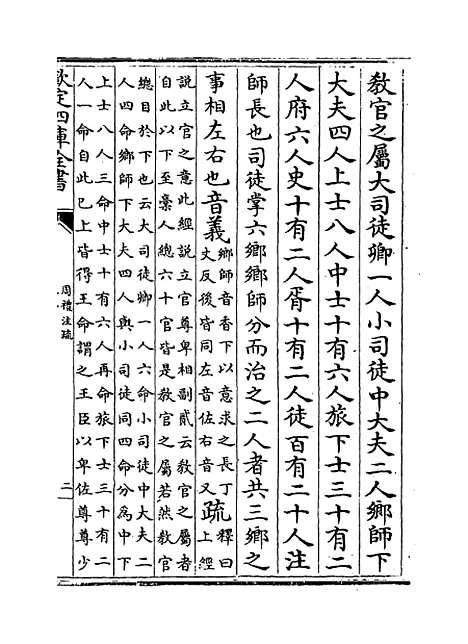 教官之屬大司徒卿一人小司徒中大夫二人鄉師下
大夫四人上士八人中士十有六人旅下士三十有二
人府六人史十有二人胥十有二人徒百有二十人注
師長也司徒掌六鄉鄉師分而治之二人者共三鄉之
事相左右也音義
鄉師音香下以意求之長丁
丈反後皆同左音佐右音又
疏
釋曰
上經
說立官之意此經說立官尊卑相副貳云教官之屬者
自此以下至稾人總六十官皆是教官之屬若然教官
總目於下也云大司徒卿一人六命小司徒中大夫二
人四命鄉師下大夫四人與小司徒同四命分為中下
上士八人三命中士十有六人再命旅下士三十有二
人一命自此已上皆得王命謂之王臣以卑佐尊尊少
欽定四庫全書
周禮注疏
二